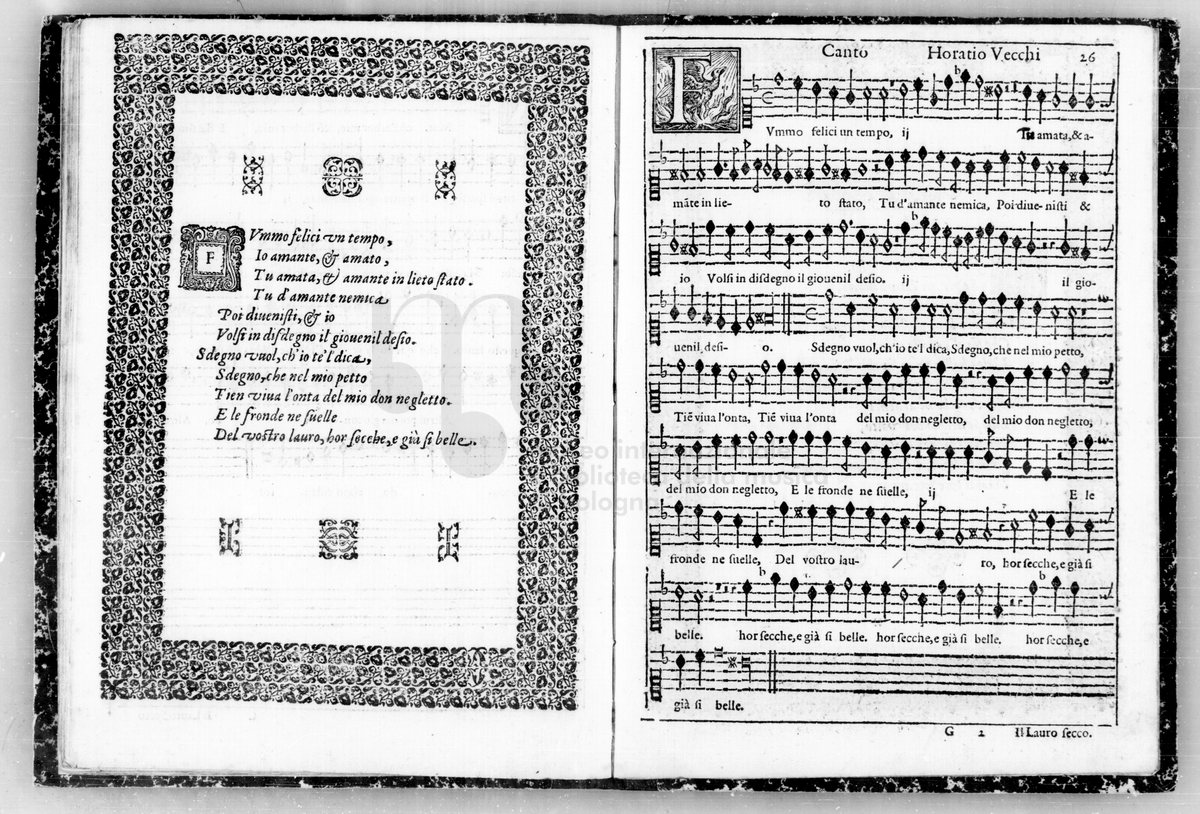 F
Vmmo felici vn tempo,
Io amante, & amato,
Tu amata, & amante in lieto ſtato.
Tu d'amante nemica
Poi diueniſti, & io
Volſi in diſdegno il giouenil deſio.
Sdegno vuol, ch'io te'l dica,
Sdegno, che nel mio petto
Tien viua l'onta del mio don negletto.
E le fronde ne ſuelle
Del voſtro lauro, hor ſecche, e già ſi belle.
Canto Horatio Vecchi 26
F
Vmmo felici un tempo, ij Tu amata, & a-
mãte in lie- to ſtato, Tu d'amante nemica, Poi diue-niſti &
io Volſi in diſdegno il giouenil deſio. ij il gio-
uenil deſi- o. Sdegno vuol, ch'io te'l dica, Sdegno, che nel mio petto,
Tiẽ viua l'onta, Tiẽ viua l'onta del mio don negletto, del mio don negletto,
del mio don negletto, E le fronde ne ſuelle, ij E le
fronde ne ſuelle, Del voſtro lau- ro, hor ſecche, e già ſi
belle. hor ſecche, e già ſi belle. hor ſecche, e già ſi belle. hor ſecche, e
già ſi belle.
G 2 Il Lauro ſecco.